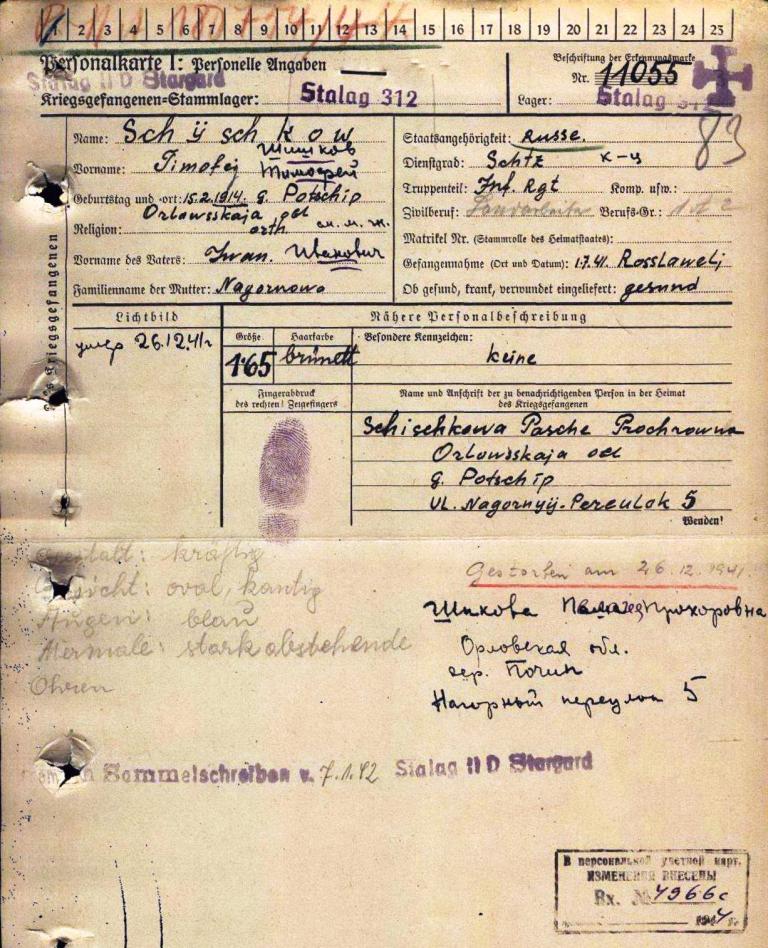 1 2 3 4 5 6 7 8 9 10 11 12 13 14 15 16 17 18 19 20 21 22 23 24 25
Personalkarte I: Personelle Angaben
Beschriftung der Erkennungsmarke
Nr. 11055
Stalag II D Stargard
Kriegsgefangenen-Stammlager: Stalag 312
Lager: Stalag 312
83
Des Kriegsgefangenen
Name: Schÿschkow
Шишков
Vorname: Timofej Тимофей
Geburtstag und -ort: 15.2.1914. g. Potschip
Orlowsskaja ocl
Religion: orth
Vorname des Vaters: Iwan. Иванович
Familienname der Mutter: Nagornowa
Staatsangehörigkeit: Russe.
Dienstgrad: Schtz к-ц
Truppenteil: Inf. Rgt Komp. usw.:
Zivilberuf: Landarbeiter Berufs-Gr.:
Matrikel Nr. (Stammrolle des Heimatstaates):
Gefangennahme (Ort und Datum): 1.7.41. Rosslawlj
Ob gesund, krank, verwundet eingeliefert: gesund
Lichtbild
умер 26.12.41г
Nähere Personalbeschreibung
Größe
1.65
Haarfarbe
brünett
Besondere Kennzeichen:
keine
Fingerabdruck
des rechten! Zeigefingers
Name und Anschrift der zu benachrichtigenden Person in der Heimat
des Kriegsgefangenen
Schischkowa Pasche Prochrowna
Orlowsskaja ocl
g. Potschip
Ul. Nagornyij-Pereulok 5
Wenden!
Gestalt: kräftig
Gesicht: oval, kantig
Augen: blau
Mermale: stark abstehende
Ohren
Gestorben am 26.12.1941.
Шикова Прохоровна
Орловская обл.
дер. Почип
Нагорный переулок 5
Sammelschreiben v. 7.1.42 Stalag II D Stargard
В персональной учетной карт.
ИЗМЕНЕНИЯ ВНЕСЕНЫ
Вх. № 4966с